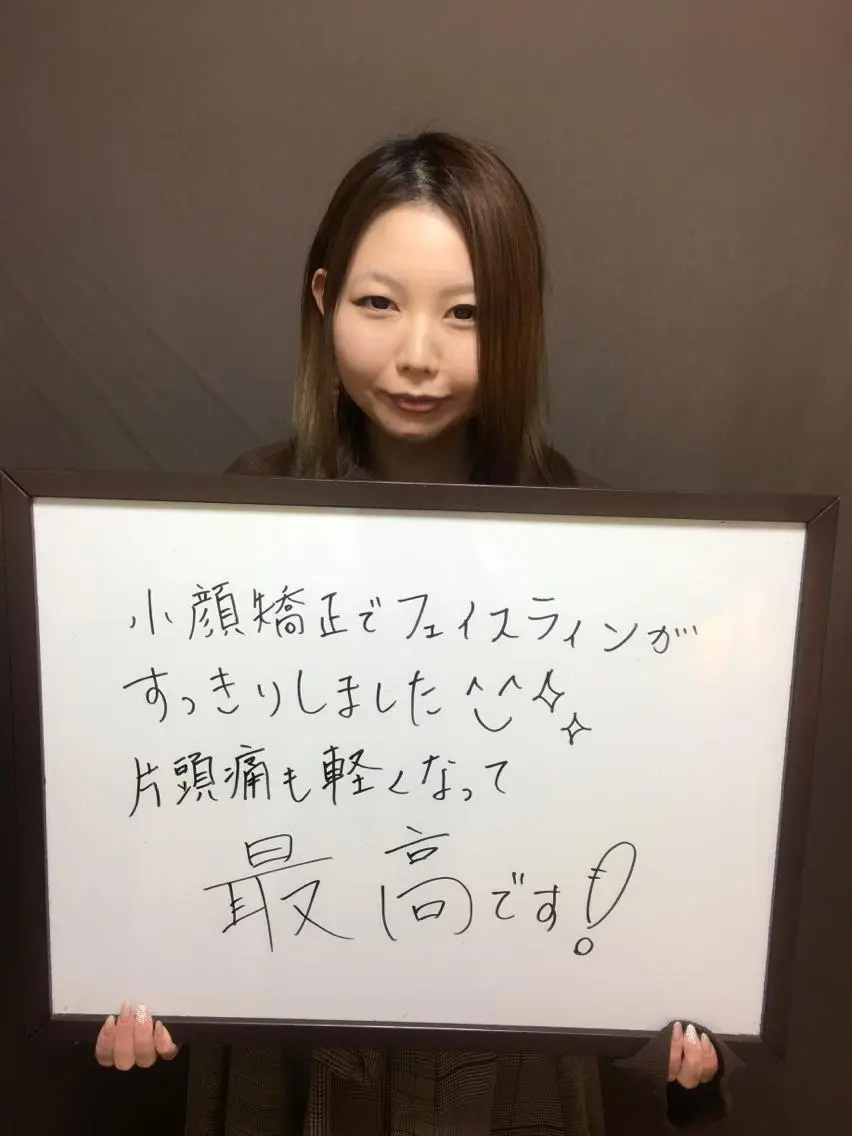 小顔矯正でフェイスラインが
すっきりしました
片頭痛も軽くなって
最高です!